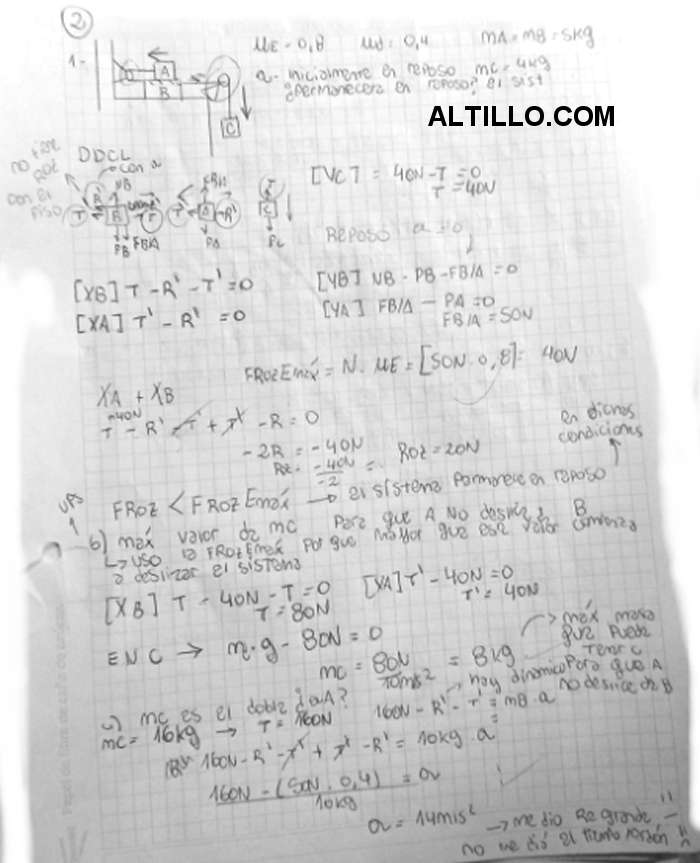 2
ME = 0,8 Md = 0,4 mA = mB = 5kg
1- A a- inicialmente en reposo mC = 4kg
B ¿permanecera en reposo? el sist
C
ALTILLO.COM
DDCL
no con a
con el
piso
NB FB/A
T B T' A R' C
PB FB/A PA PC
[YC] = 40N - T = 0
T = 40N
Reposo a = 0
[XB] T - R' - T' = 0 [YB] NB - PB - FB/A = 0
[XA] T' - R' = 0 [YA] FB/A - PA = 0
FB/A = 50N
FROZEmáx = N. ME = [50N . 0,8] = 40N
XA + XB
=40N
T - R' - T' + T' - R = 0
-2R = -40N
Rz = -40N / -2 = Roz = 20N
en dichas
condiciones
FROZ < FROZEmáx → el sistema permanece en reposo
UPS
b) max valor de mC para que A no deslize B
↳ USO la FROZEmáx porque mayor que ese valor comienza
a deslizar el sistema
[XB] T - 40N - T = 0 [XA] T' - 40N = 0
T = 80N T' = 40N
EN C → m.g - 80N = 0
mC = 80N / 10m/s² = 8kg
máx masa
que puede
tener C
para que A
no deslice de B
c) mC es el doble ¿aA? hay dinamico
mC = 16kg → T = 160N 160N - R' - T' = mB . a
160N - R' - T' + T' - R' = 10kg a
160N - (50N . 0,4) / 10kg = a
a = 14m/s² → me dio Re grande,
no me dió el tiempo perdón